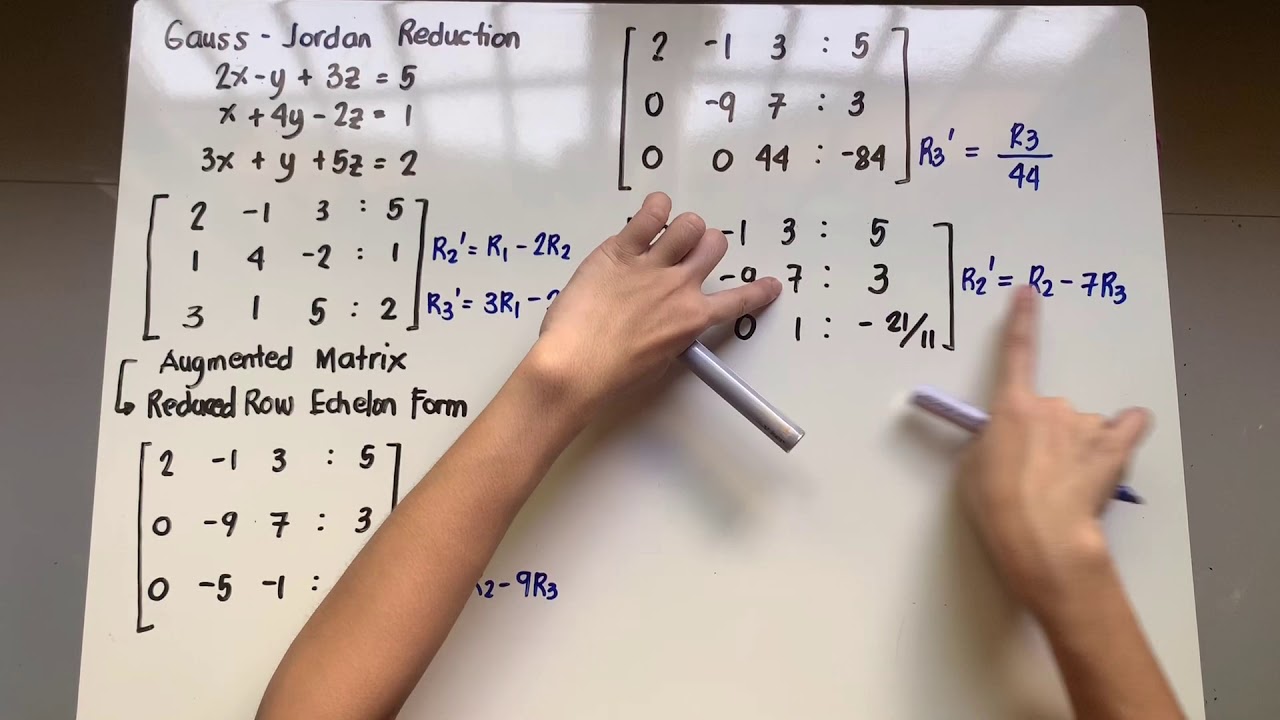 Gauss - Jordan Reduction
2x - y + 3z = 5
x + 4y - 2z = 1
3x + y + 5z = 2
2 -1 3 : 5
1 4 -2 : 1 R₂' = R₁ - 2R₂
3 1 5 : 2 R₃' = 3R₁ -
Augmented Matrix
Reduced Row Echelon Form
2 -1 3 : 5
0 -9 7 : 3
0 -5 -1 : - 9R₃
2 -1 3 : 5
0 -9 7 : 3
0 0 44 : -84 R₃' = R3/44
-1 3 : 5
-9 7 : 3 R₂' = R₂ - 7R₃
0 1 : - 21/11